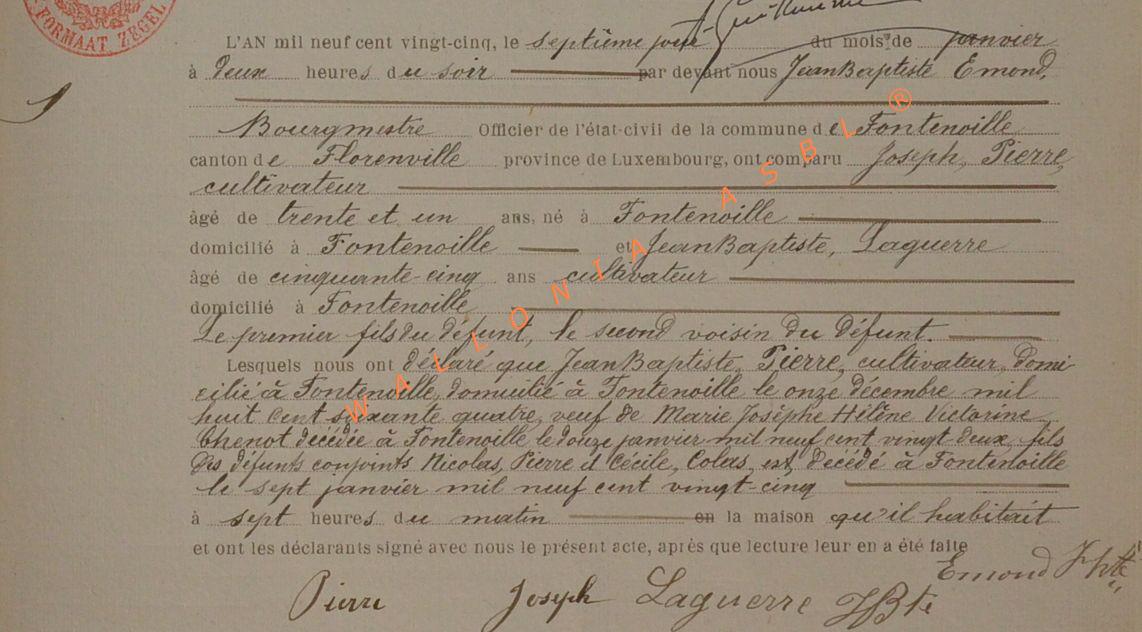 FORMAAT ZEGEL
Guillaume
L'AN mil neuf cent vingt-cinq, le septième jour du mois de janvier
à deux heures du soir par devant nous JeanBaptiste Emond,
Bourgmestre Officier de l'état-civil de la commune de Fontenoille
canton de Florenville province de Luxembourg, ont comparu Joseph, Pierre,
cultivateur
âgé de trente et un ans, né à Fontenoille
domicilié à Fontenoille et JeanBaptiste, Laguerre
âgé de cinquante-cinq ans cultivateur
domicilié à Fontenoille
Le premier fils du défunt, le second voisin du défunt.
Lesquels nous ont déclaré que JeanBaptiste, Pierre, cultivateur, domi
cilié à Fontenoille, domicilié à Fontenoille le onze décembre mil
huit cent soixante quatre, veuf de Marie Joséphe Hélène Victorine
Thenot décédée à Fontenoille le douze janvier mil neuf cent vingt deux, fils
des défunts conjoints Nicolas, Pierre et Cécile, Colas, est décédé à Fontenoille
le sept janvier mil neuf cent vingt-cinq
à sept heures du matin en la maison qu'il habitait
et ont les déclarants signé avec nous le présent acte, après que lecture leur en a été faite
Emond JBte
Pierre Joseph Laguerre JBte
WALLONIA ASBL ®